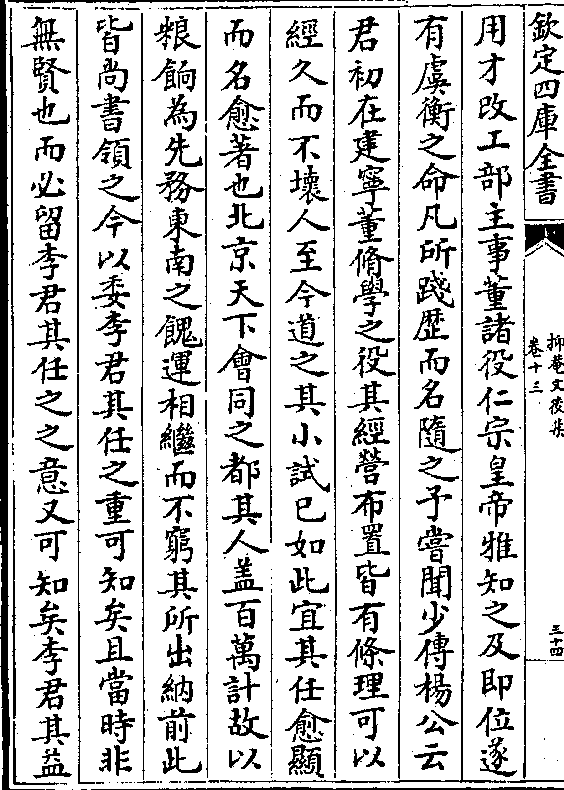 欽定四庫全書
抑菴文後集
卷十三
三十四
用才改工部主事董諸役仁宗皇帝雅知之及即位遂
有虞衡之命凡所踐歴而名隨之予嘗聞少傅楊公云
君初在建寧董脩學之役其經營布置皆有條理可以
經久而不壞人至今道之其小試已如此宜其任愈顯
而名愈著也北京天下會同之都其人盖百萬計故以
粮餉為先務東南之餽運相繼而不窮其所出納前此
皆尚書領之今以委李君其任之重可知矣且當時非
無賢也而必留李君其任之之意又可知矣李君其益